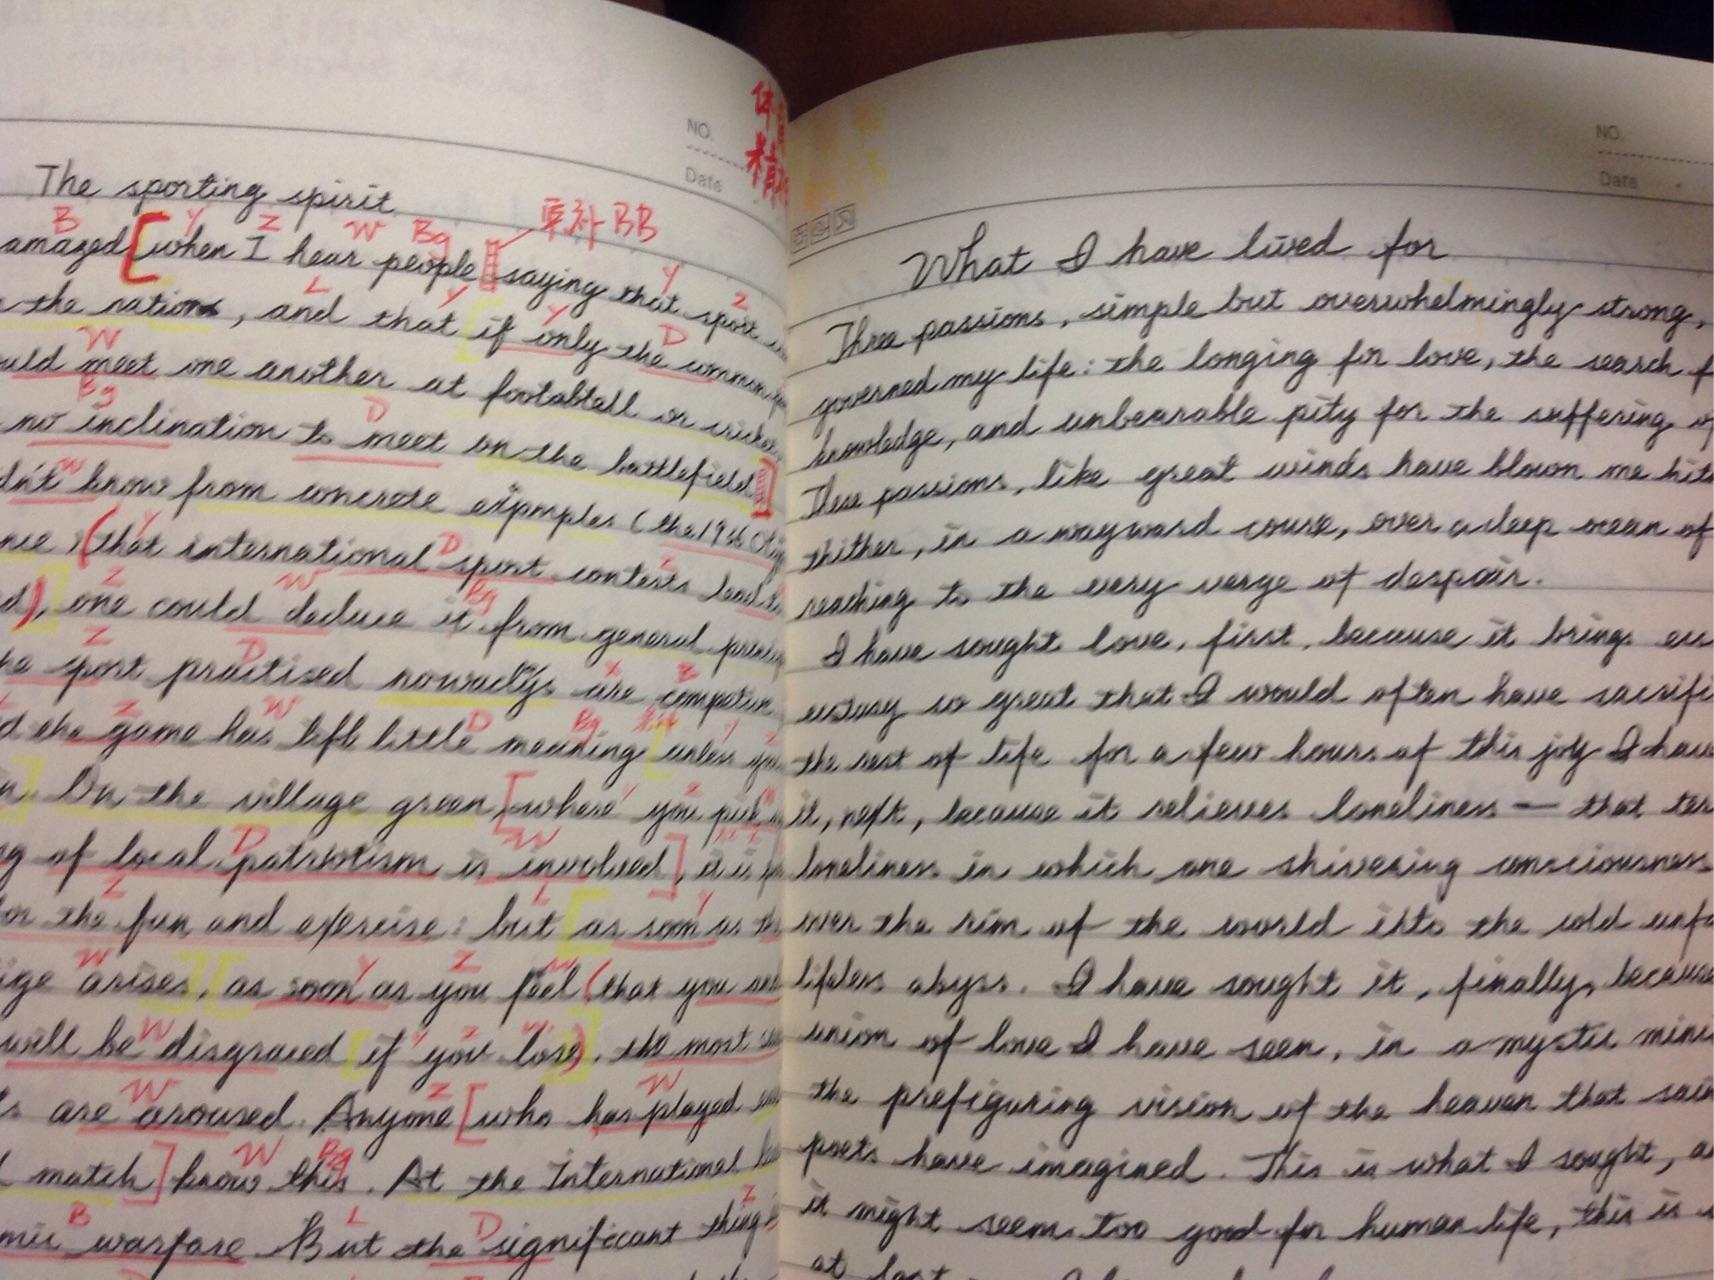 体
精神
NO.
Date
The sporting spirit
B Y Z W Bg 宾补 BB
amazed [when I hear people saying that sport
L Y Y Z
the nations, and that if only the common
W Y D
uld meet one another at footabtall or cricke
Bg D
no inclination to meet on the battlefield]
W
dn't know from concrete exjmples (the 1936 Oly
Y D Z
nce, (that international sport contests lead to
Z W Bg
d), one could deduce it from general
Z D X B
he sport practised nowadys are
Z W D Bg Y
d the game has left little meaning unless you
n. On the village green [where you pick
D W
g of local patriotism is involved], it is
Z L Y
or the fun and exercise: but as soon as
W Y Z W
ige arises, as soon as you feel (that you
W Y Z W
will be disgraced if you lose), the most
W Z W
s are aroused. Anyone [who has played
W Bg
match] know this. At the International
B L D Z
mic warfare. But the significant thing
NO.
Date
What I have lived for
Three passions, simple but overwhelmingly strong,
governed my life: the longing for love, the search f
knowledge, and unbearable pity for the suffering of
These passions, like great winds have blown me hit
thither, in a wayward course, over a deep ocean of
reaching to the very verge of despair.
I have sought love, first, because it brings
ecstasy so great that I would often have sacrifi
the rest of life for a few hours of this joy I have
it, next, because it relieves loneliness — that ter
loneliness in which one shivering consciousness
over the rim of the world ihto the cold unfa
lifeless abyss. I have sought it, finally, because
union of love I have seen, in a mystic mini
the prefiguring vision of the heaven that sain
poets have imagined. This is what I sought, a
it might seem too good for human life, this is
at last